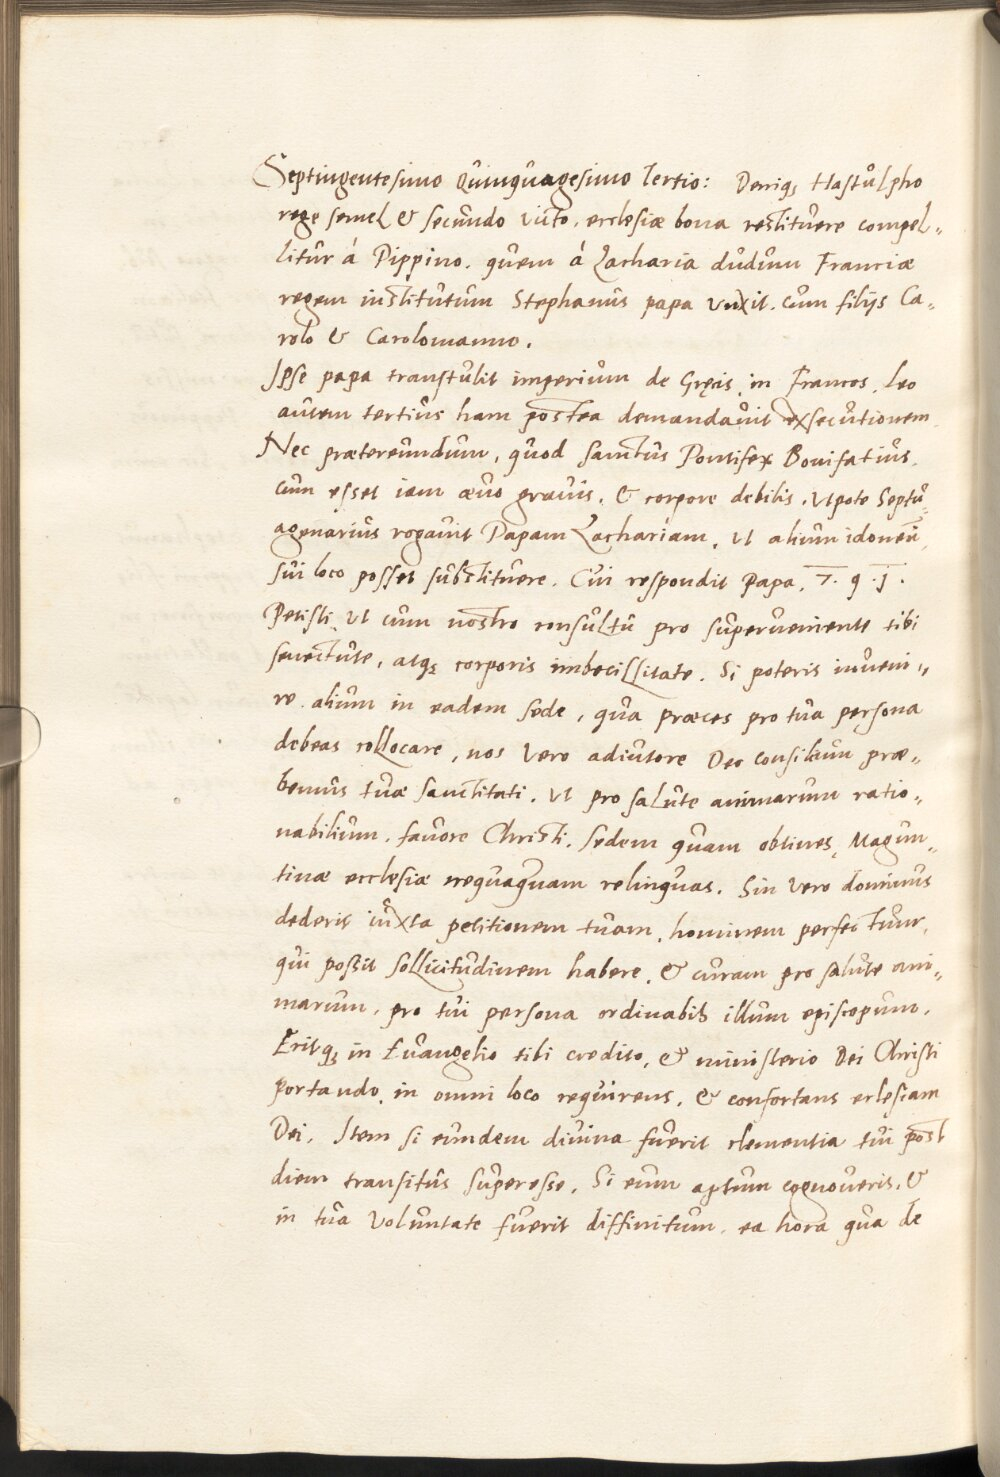 Septingentesimo Quinquagesimo Tertio: Deniq; Hastulpho
rege semel & secundo victo, ecclesiæ bona restituere compel„
litur á Pippino. quem á Zacharia dudum Franciæ
regem institutum Stephanus papa vnxit. cum filijs Ca„
rolo & Carolomanno.
Ipse papa transtulit imperium de Gręcis in Francos, Leo
autem tertius ham postea demandauit exsecutionem
Nec prætereundum, quod sanctus Pontifex Bonifatius,
cum esset iam æuo grauis, & corpore debilis. Vtpote Septu„
agenarius rogauit Papam Zachariam, vt alium idoneũ
sui loco posset substituere. Cui respondit Papa. 7. q. j.
Petisti vt cum nostro consultu pro superueniente tibi
senectute, atq; corporis imbecillitate. Si poteris inueni„
re alium in eadem sede, qua præces pro tua persona
debeas collocare, nos vero adiutore Deo consilium præ„
bemus tuæ sanctitati. Vt pro salute animarum ratio„
nabilium, fauore Christi, sedem quam obtines, Magun„
tinæ ecclesiæ nequaquam relinquas. Sin vero dominus
dederit iuxta petitionem tuam, hominem perfectum,
qui possit sollicitudinem habere, & curam pro salute ani„
marum, pro tui persona ordinabis illum episcopum,
Eritq; in Euangelio tibi credito, & ministerio Dei Christi
portando, in omni loco requirens, & confortans eclesiam
Dei. Item si eumdem diuina fuerit clementia tui post
diem transitus superesse, Si eum aptum cognoueris, &
in tua voluntate fuerit diffinitum, ea hora qua de